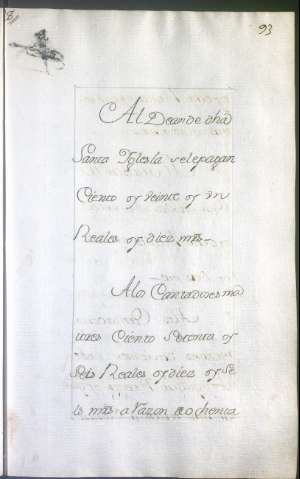 93
Al Dean de dha
Santa Yglesia se le pagan
Ciento y veinte y un
Reales y diez mrs
A los Cantadores ma
iores Ciento Setenta y
Seis Reales y diez y se
is mrs a razon de ochenta